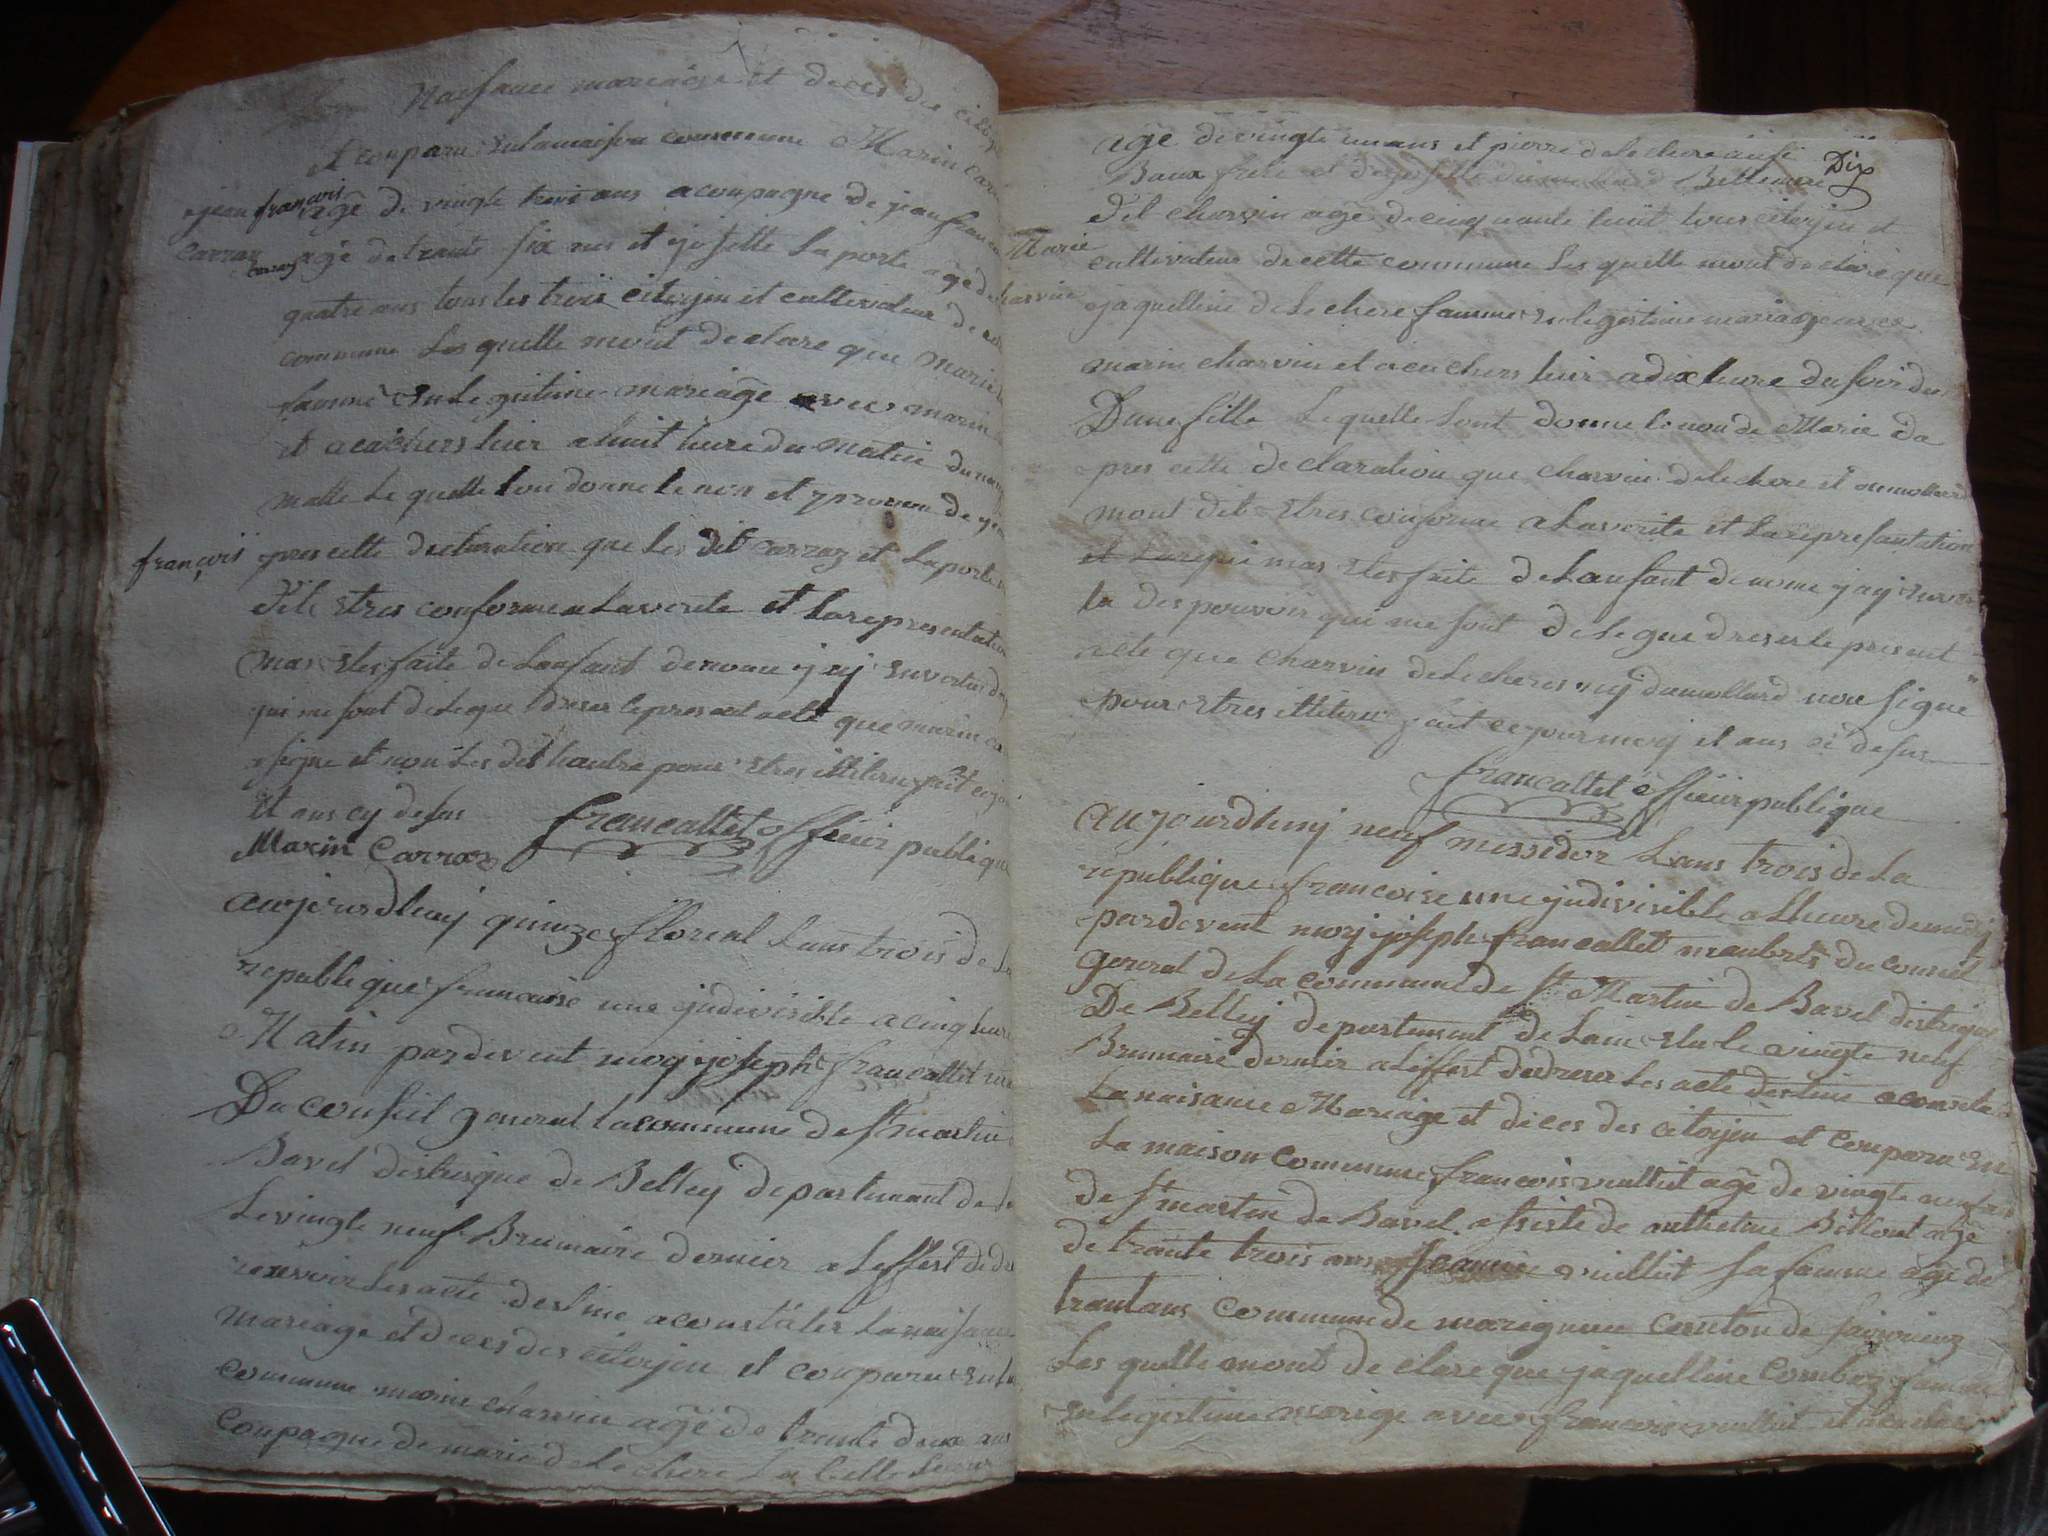 Naissance mariage et deces des citoy
et conparu en la maison commune Marin Car
jean françois
Carraz
agé de vingte trois ans acoupagne de jean fran
agé de trante six ans et josette Laporte agé de
quatre ans tous les trois citoyin et cultivateur de
commune Les quelle mont declare que Marie
famme en Legitime mariage avec marin
et acouchers hier a huit heure du matin du
malle Le quelle lon donne le non et prenon de
françois
pres cette declaration que Les dit carraz et Laporte
dit Etres conforme a La verite et La representation
mas Etes faite de Lanfant denome jay en vertus
qui me sont delegue dreser le present acte que marin ca
signe et non Les dit hautre pour Etres illiteru fait ce
et ans cy desus
Marin Carraz francallet officier publique
aujourdhuy quinze floreal Lans trois de La
republique francaise une judivisible a cinq heure
Matin pardevent moy joseph francallet
Du conseil general La commune de st martin
Bavel distrique de Belley departemant de
Le vingte neuf Brumaire dernier a Leffest de
recevoir Les acte destine a constater La naisance
mariage et deces des citoyin et conparu en La
commune marin charvin agé de trante deux ans
coupagne de marie deLechere La belle Seur
Dix
age de vingte un ans et pierre deLechere ausi
Baux frere et
dit charvin agé de cinquante huit tous citoyin et
Marie
charvin
cultivateur de cette commune Les quelle mont declaré que
jaquelline deLechere famme en legistime mariage avec
marin charvin et acouchers hier a dix heure du soir du
Dune fille Le quelle Lont donne le non de Marie da
pres cette declaration que charvin deLechere et dumollard
mont dit Etres conforme a La verite et La represantation
mas Etes faite de Lanfant denome jay en ver
tu des pouvoir qui me sont deLegue dreser le present
acte que charvin deLechere ny dumollard non signe
pour Etres illiteru fait ce jour moy et ans si desus
francallet officier publique
aujourdhuy neuf messidor Lans trois de La
republique francoise une judivisible a Lheure de midy
pardevent moy joseph francallet manbres du conseil
general de La commune de St Martin de Bavel distrique
De Belley departement de Lain Elu le vingte neuf
Brumaire dernier a Leffest de dreser Les acte destine a constater
La naisance Mariage et deces des citoyin et conparu en
La maison commune francois vuilliet agé de vingte neuf ans
de st martin de Bavel asiste de anthelme Billout agé
de trante trois ans Jeannie vuilliet sa famme agé de
trant ans commune de marignieu conton de
Les quelle mont declare que jaquelline Combaz famme
en legistime mariage avec francois vuilliet et acouche